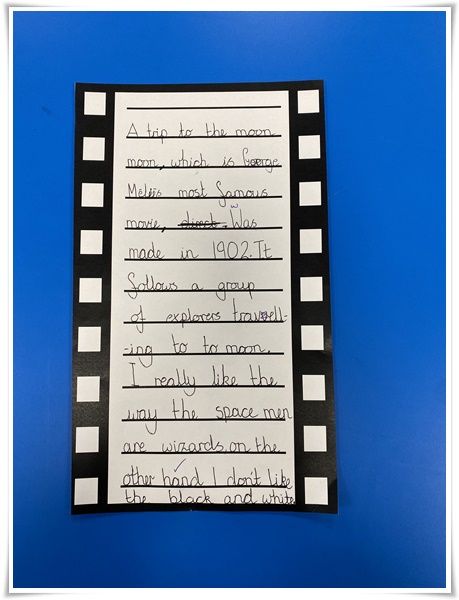 A trip to the moon
moon, which is George
Méliès most famous
movie, direct. Was
made in 1902. It
follows a group
of explorers travell-
-ing to to moon.
I really like the
way the space men
are wizards. on the
other hand I don't like
the black and white